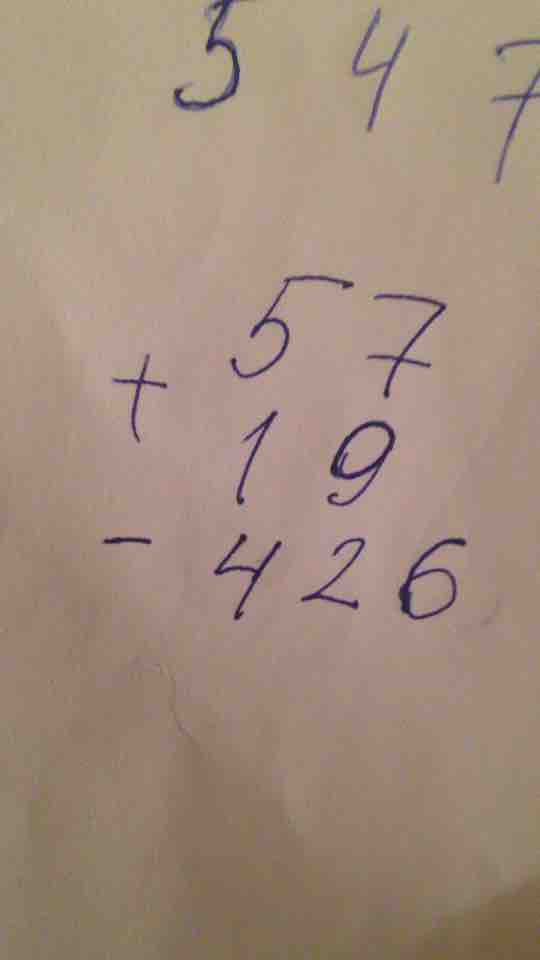 5 4 7
57
+
19
- 426